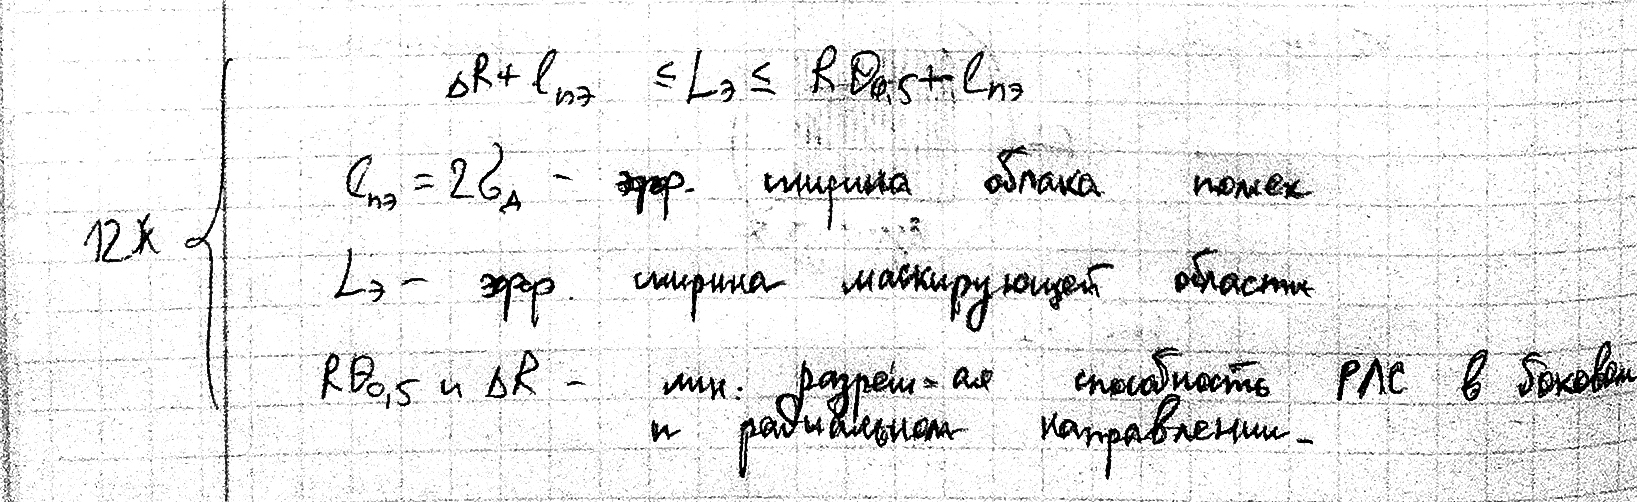 ΔR + lпэ ≤ Lэ ≤ Rθ0,5 + lпэ
lпэ = 2σд - эфф. ширина облака помех
12Ж
Lэ - эфф. ширина маскирующей области
Rθ0,5 и ΔR - мин. разреш-ая способность РЛС в боковом
и радиальном направлении.